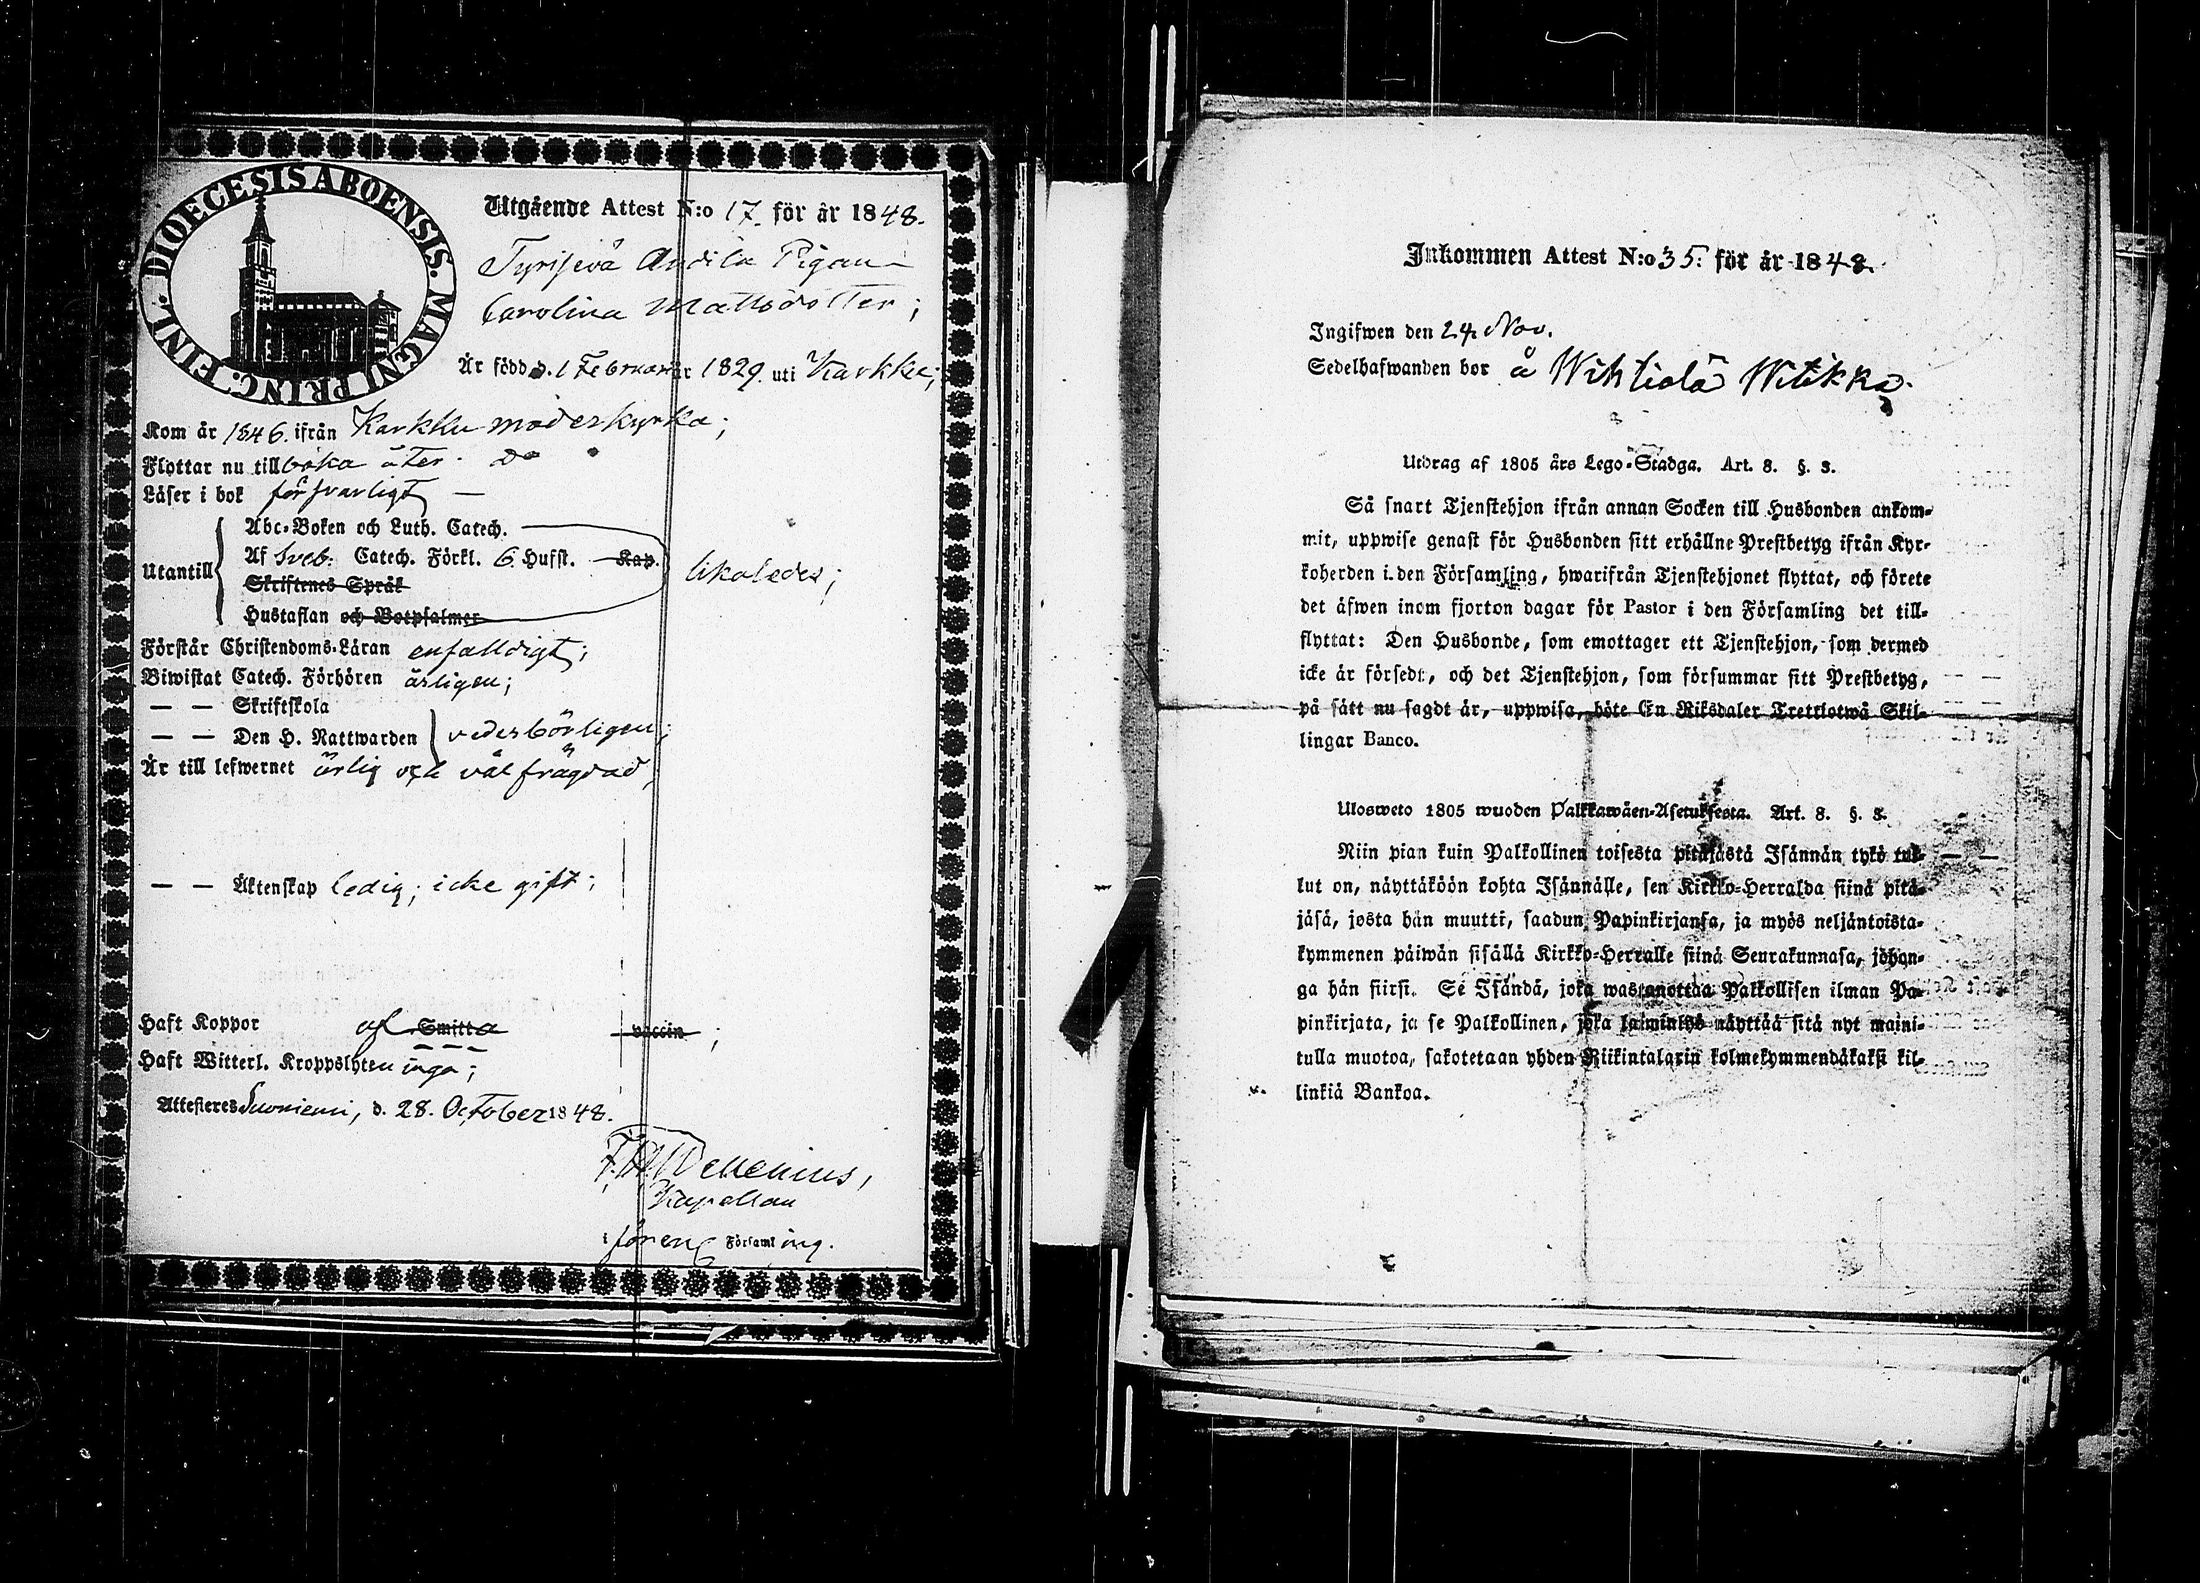 DIOECESIS ABOENSIS. MAGNI PRINC. FINL.
Utgående Attest N:o 17. för år 1848.
Tyrisevä Andila Pigan
Carolina Mattsdotter;
Är född d. 1 Februari år 1829. uti Karkku;
Kom år 1846. ifrån Karkku moderkyrka;
Flyttar nu tillbaka åter. Do
Läser i bok försvarligt —
Utantill
Abc-Boken och Luth. Catech.
Af Sveb. Catech. Förkl. 6 Hufst. Kap.
Skriftenes Språk
Hustaflan och Botpsalmer
likaledes;
Förstår Christendoms-Läran enfalldigt;
Biwistat Catech. Förhören årligen;
— — Skriftskola
— — Den H. Nattwarden vederbörligen;
Är till lefwernet ärlig och väl frägdad,
— — Äktenskap ledig; icke gift;
Haft Koppor af Smitta vaccin;
Haft Witterl. Kroppslyten inga;
Attesteres Suoniemi, d. 28. October 1848.
Kapellan
i förenº Församling.
Inkommen Attest N:o 35. för år 1848.
Ingifwen den 24. Nov.
Sedelhafwanden bor å Wihtiälä Witikka.
Utdrag af 1805 års Lego-Stadga. Art. 8. §. 3.
Så snart Tjenstehjon ifrån annan Socken till Husbonden ankom-
mit, uppwise genast för Husbonden sitt erhållne Prestbetyg ifrån Kyr-
koherden i den Församling, hwarifrån Tjenstehjonet flyttat, och förete
det äfwen inom fjorton dagar för Pastor i den Församling det till-
flyttat: Den Husbonde, som emottager ett Tjenstehjon, som dermed
icke är försedt, och det Tjenstehjon, som försummar sitt Prestbetyg,
på sätt nu sagdt är, uppwisa, böte En Riksdaler Trettiotwå Skil-
lingar Banco.
Ulosweto 1805 wuoden Palkkawäen-Asetuksesta. Art. 8. §. 3.
Niin pian kuin Palkollinen toisesta pitäjästä Isännän tykö tul-
lut on, näyttäköön kohta Isännälle, sen Kirkko-Herralda siinä pitä-
jäsä, josta hän muutti, saadun Papinkirjansa, ja myös neljäntoista-
kymmenen päiwän sisällä Kirkko-Herralle siinä Seurakunnasa, johon-
ga hän siirsi. Se Isändä, joka wastanottaa Palkollisen ilman Pa-
pinkirjata, ja se Palkollinen, joka laiminlyö näyttää sitä nyt maini-
tulla muotoa, sakotetaan yhden Riikintalarin kolmekymmendäkaksi kil-
linkiä Bankoa.